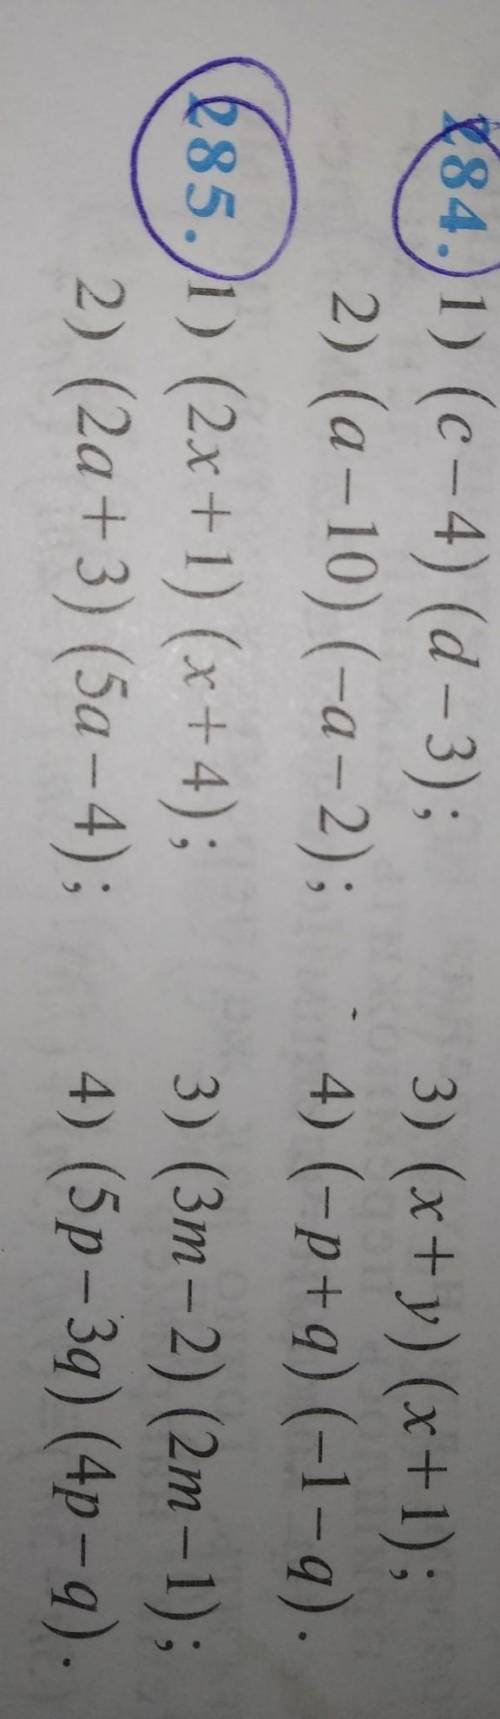 284. 1) (c – 4) (d – 3); 3) (x + y) (x + 1);
2) (a – 10) (–a – 2); 4) (–p + q) (–1 – q).
285. 1) (2x + 1) (x + 4); 3) (3m – 2) (2m – 1);
2) (2a + 3) (5a – 4); 4) (5p – 3q) (4p – q).